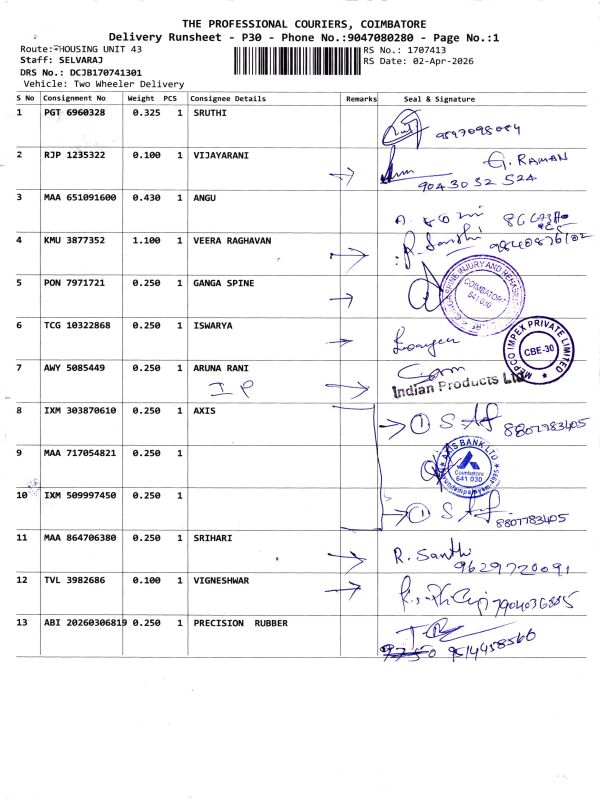 THE PROFESSIONAL COURIERS, COIMBATORE
Delivery Runsheet - P30 - Phone No.:9047080280 - Page No.:1
Route: HOUSING UNIT 43
RS No.: 1707413
Staff: SELVARAJ
RS Date: 02-Apr-2026
DRS No.: DCJB170741301
Vehicle: Two Wheeler Delivery
S No Consignment No Weight PCS Consignee Details Remarks Seal & Signature
1 PGT 6960328 0.325 1 SRUTHI
2 RJP 1235322 0.100 1 VIJAYARANI G. RAMAN
9043032524
3 MAA 651091600 0.430 1 ANGU
4 KMU 3877352 1.100 1 VEERA RAGHAVAN R. Santhi
5 PON 7971721 0.250 1 GANGA SPINE
SPINE INJURY AND
COIMBATORE
641 030
6 TCG 10322868 0.250 1 ISWARYA
MEPCO IMPEX PRIVATE LIMITED
CBE-30
7 AWY 5085449 0.250 1 ARUNA RANI
IP
Indian Products Ltd
8 IXM 303870610 0.250 1 AXIS
① S 8807783405
9 MAA 717054821 0.250 1
AXIS BANK LTD
Coimbatore
641 030
10 IXM 509997450 0.250 1
① S 8807783405
11 MAA 864706380 0.250 1 SRIHARI R. Santhi
9629720091
12 TVL 3982686 0.100 1 VIGNESHWAR
13 ABI 20260306819 0.250 1 PRECISION RUBBER
9514458566